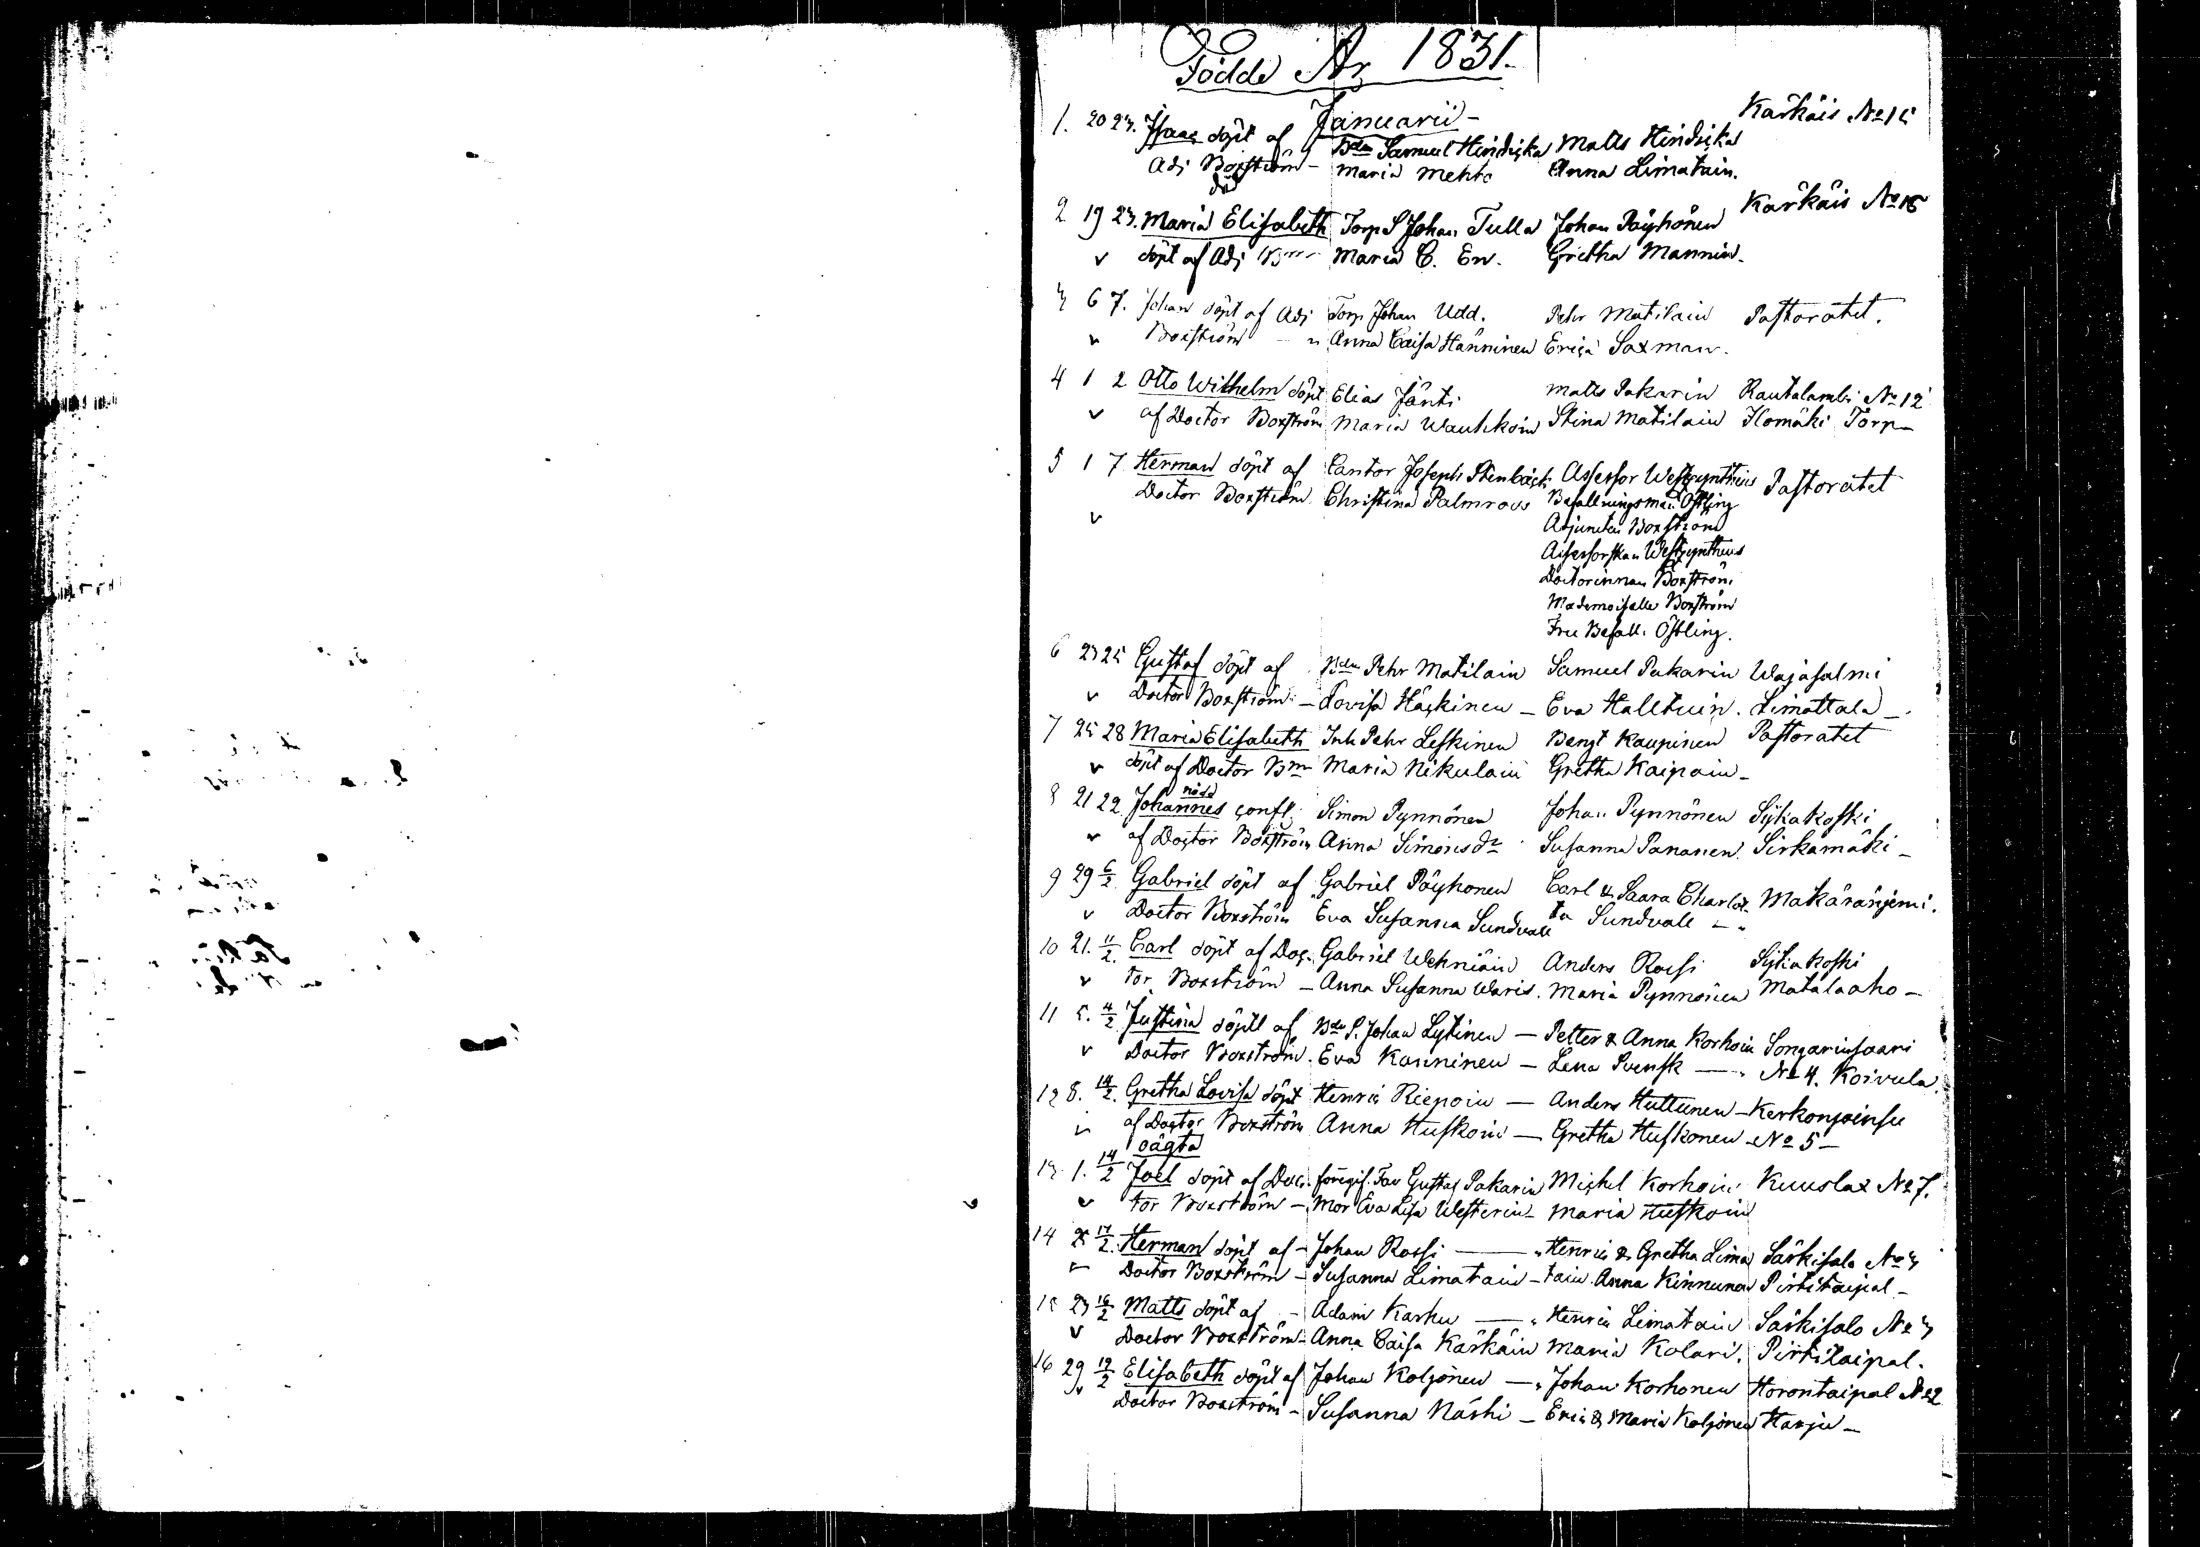 Födde År 1831.
Januarii -
1. 20 23. Isaac döpt af Bdn Samuel Hindricka Matts Hindricka Karkais No 15
Adj Boxström - Maria Mehto Anna Limatain.
2 19 23. Maria Elisabeth Torp S Johan Tulla Johan Pöyhönen Karkais No 15
v döpt af Adj Bm Maria C. En. Gretha Mannin.
3 6 7. Johan döpt af Adj Torp Johan Udd. Pehr Matilain Pastoratet.
v Boxström - Anna Caisa Hänninen Erica Saxman.
4 1 2 Otto Wilhelm döpt Elias Jänti Matts Pakarin Rautalambi No 12
v af Doctor Boxström Maria Wauhkoin Stina Matilain Ilomäki Torp -
5 1 7 Herman döpt af Cantor Joseph Stenbäck Assessor Westzynthius Pastoratet
Doctor Boxström Christina Palmroos Befallningsman Östling
v Adjuncten Boxström
Assessorskan Westzynthius
Doctorinnan Boxström
Mademoiselle Boxström
Fru Befall. Östling.
6 23 25 Gustaf döpt af Bdn Pehr Matilain Samuel Pakarin Wajasalmi
v Doctor Boxström - Lovisa Häckinen - Eva Halltuin. Limattala -
7 25 28 Maria Elisabeth Inh Pehr Leskinen Bengt Kaupinen Pastoratet
v döpt af Doctor Bm Maria Nikulain Gretha Kaipain -
8 21 22 Johannes nöd conf. Simon Pynnönen Johan Pynnönen Sykäkoski
v af Doctor Boxström Anna Simonsdr Susanna Pananen. Sirkamäki -
9 29 6/2 Gabriel döpt af Gabriel Pöyhonen Carl & Saara Charlot- Makäränjemi.
v Doctor Boxström Eva Susanna Sundvall ta Sundvall -
10 21. 11/2. Carl döpt af Doc- Gabriel Wehniäin Anders Rossi Sykäkoski
v tor Boxström - Anna Susanna Waris. Maria Pynnönen Matalaaho -
11 5. 11/2 Justina döpt af Bdn S. Johan Lytinen - Petter & Anna Korhoin Songarinsaari
v Doctor Boxström. Eva Kanninen - Lena Svensk - No 4. Koivula
12 8. 14/2. Gretha Lovisa döpt Henric Riepoin - Anders Huttunen - Kerkonjoinsu
af Doctor Boxström Anna Huskoin - Gretha Huskonen - No 5 -
oägta
13 1. 14/2 Joel döpt af Doc- föregif. Far Gustaf Pakarin Michel Korhoin Kuuslax No 7.
v tor Boxström - Mor Eva Lisa Westerin - Maria Huskoin
14 2 17/2. Herman döpt af - Johan Rossi - Henric & Gretha Lima Särkisalo No 3
Doctor Boxström - Susanna Limatain - tain. Anna Kinnunen Pirtitaipal -
15 23 16/2 Matts döpt af - Adam Karhu - Henric Limatain Särkisalo No 3
v Doctor Boxström - Anna Caisa Kärkäin Maria Kolari. Pirtitaipal.
16 29 19/2 Elisabeth döpt af Johan Koljonen - Johan Korhonen Horontaipal No 2
v Doctor Boxström - Susanna Närhi - Eric & Maria Koljonen Harju -